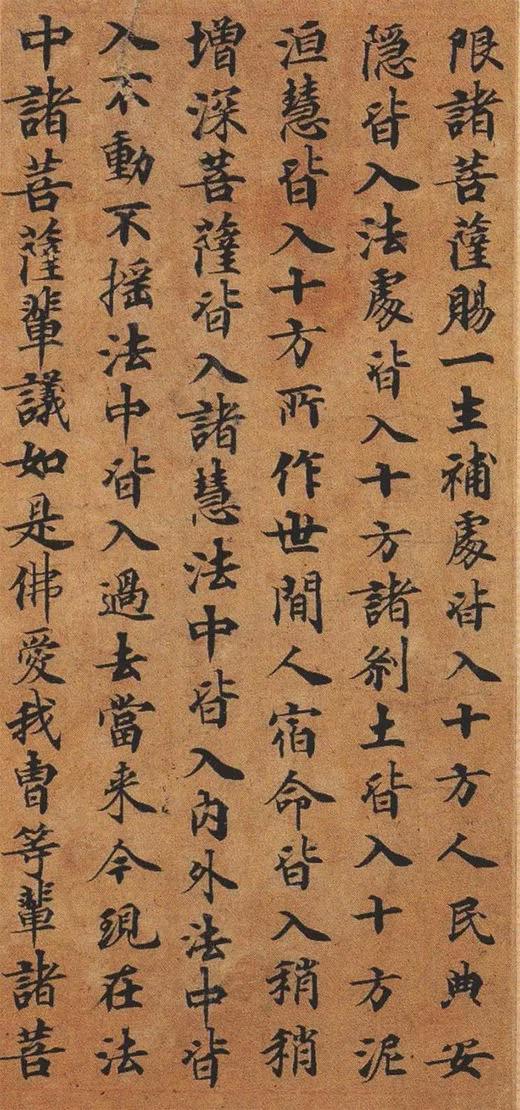 限諸菩薩賜一生補處皆入十方人民典安
隱皆入法處皆入十方諸剎土皆入十方泥
洹慧皆入十方所作世間人宿命皆入稍稍
增深菩薩皆入諸慧法中皆入内外法中皆
入不動不摇法中皆入過去當来今現在法
中諸菩薩輩議如是佛愛我曹等輩諸菩